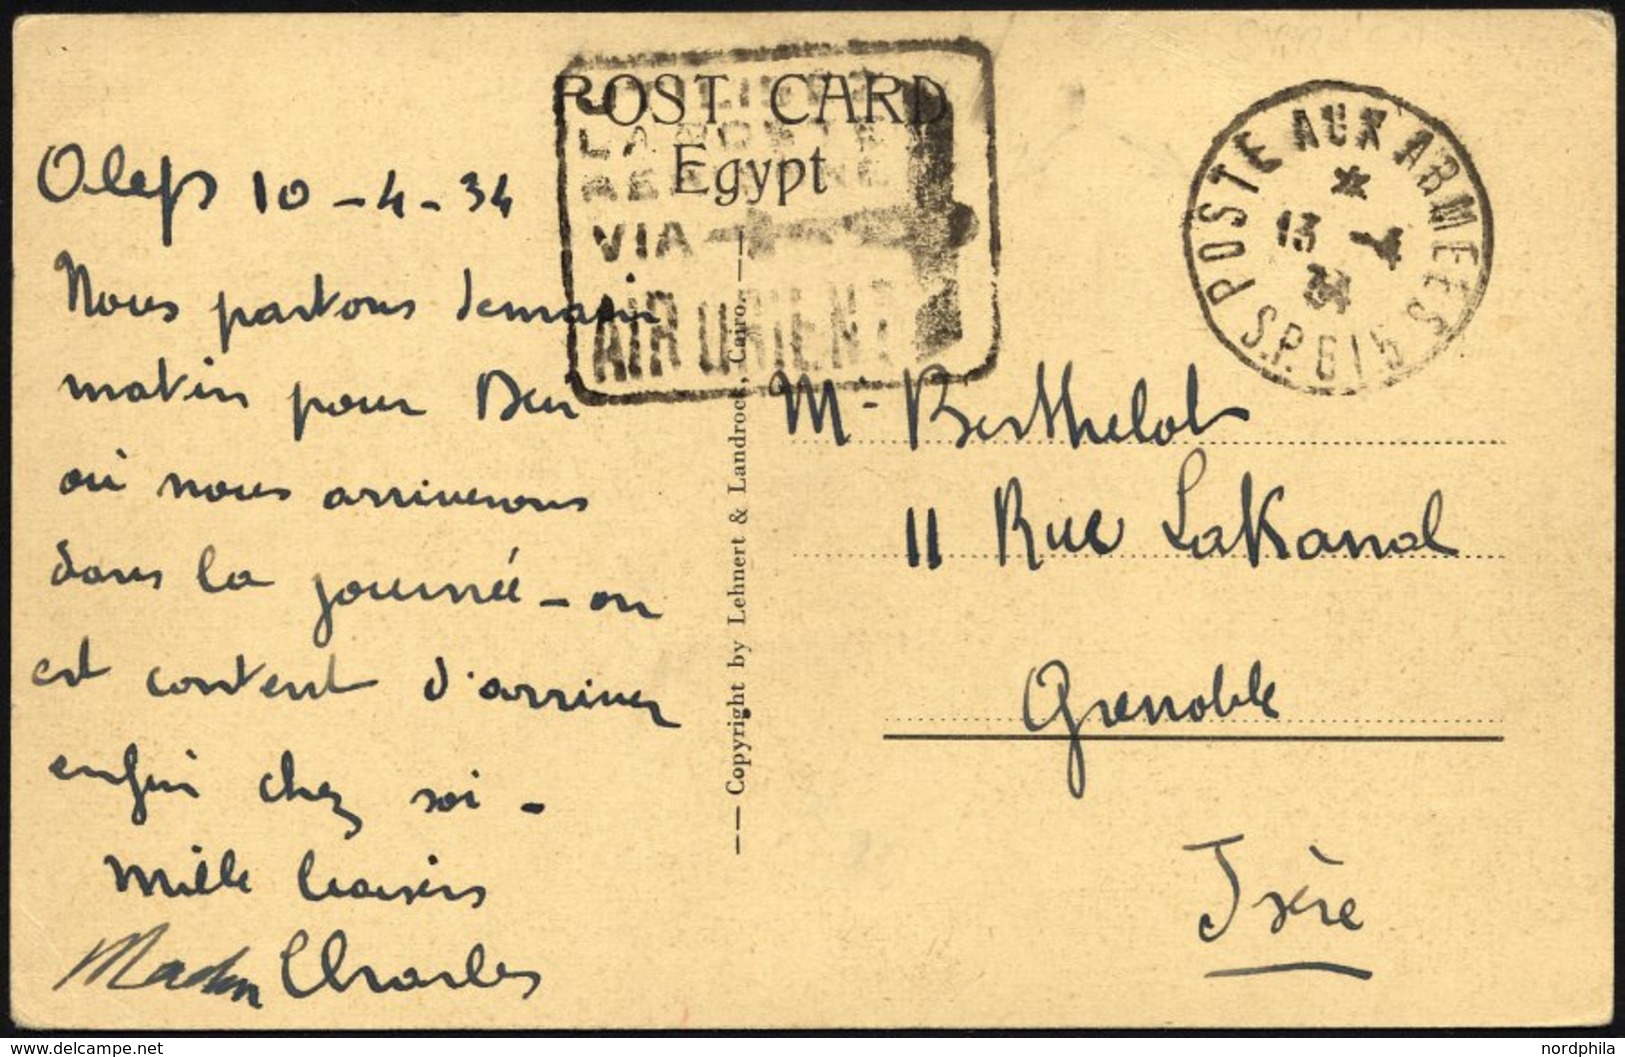 POST CARD
Egypt
LA POSTE
AERIENNE
VIA
AIR ORIENT
POSTE AUX ARMEES
*
13 -4
34
S.P. 615
Alep 10-4-34
Nous partons demain
matin pour Deir
où nous arriverons
dans la journée - on
est content d'arriver
enfin chez soi -
Mille baisers
Charles
—— Copyright by Lehnert & Landrock, Cairo. ——
Mr Berthelot
11 Rue LaKanal
Grenoble
Isère
www.delcampe.net
nordphila